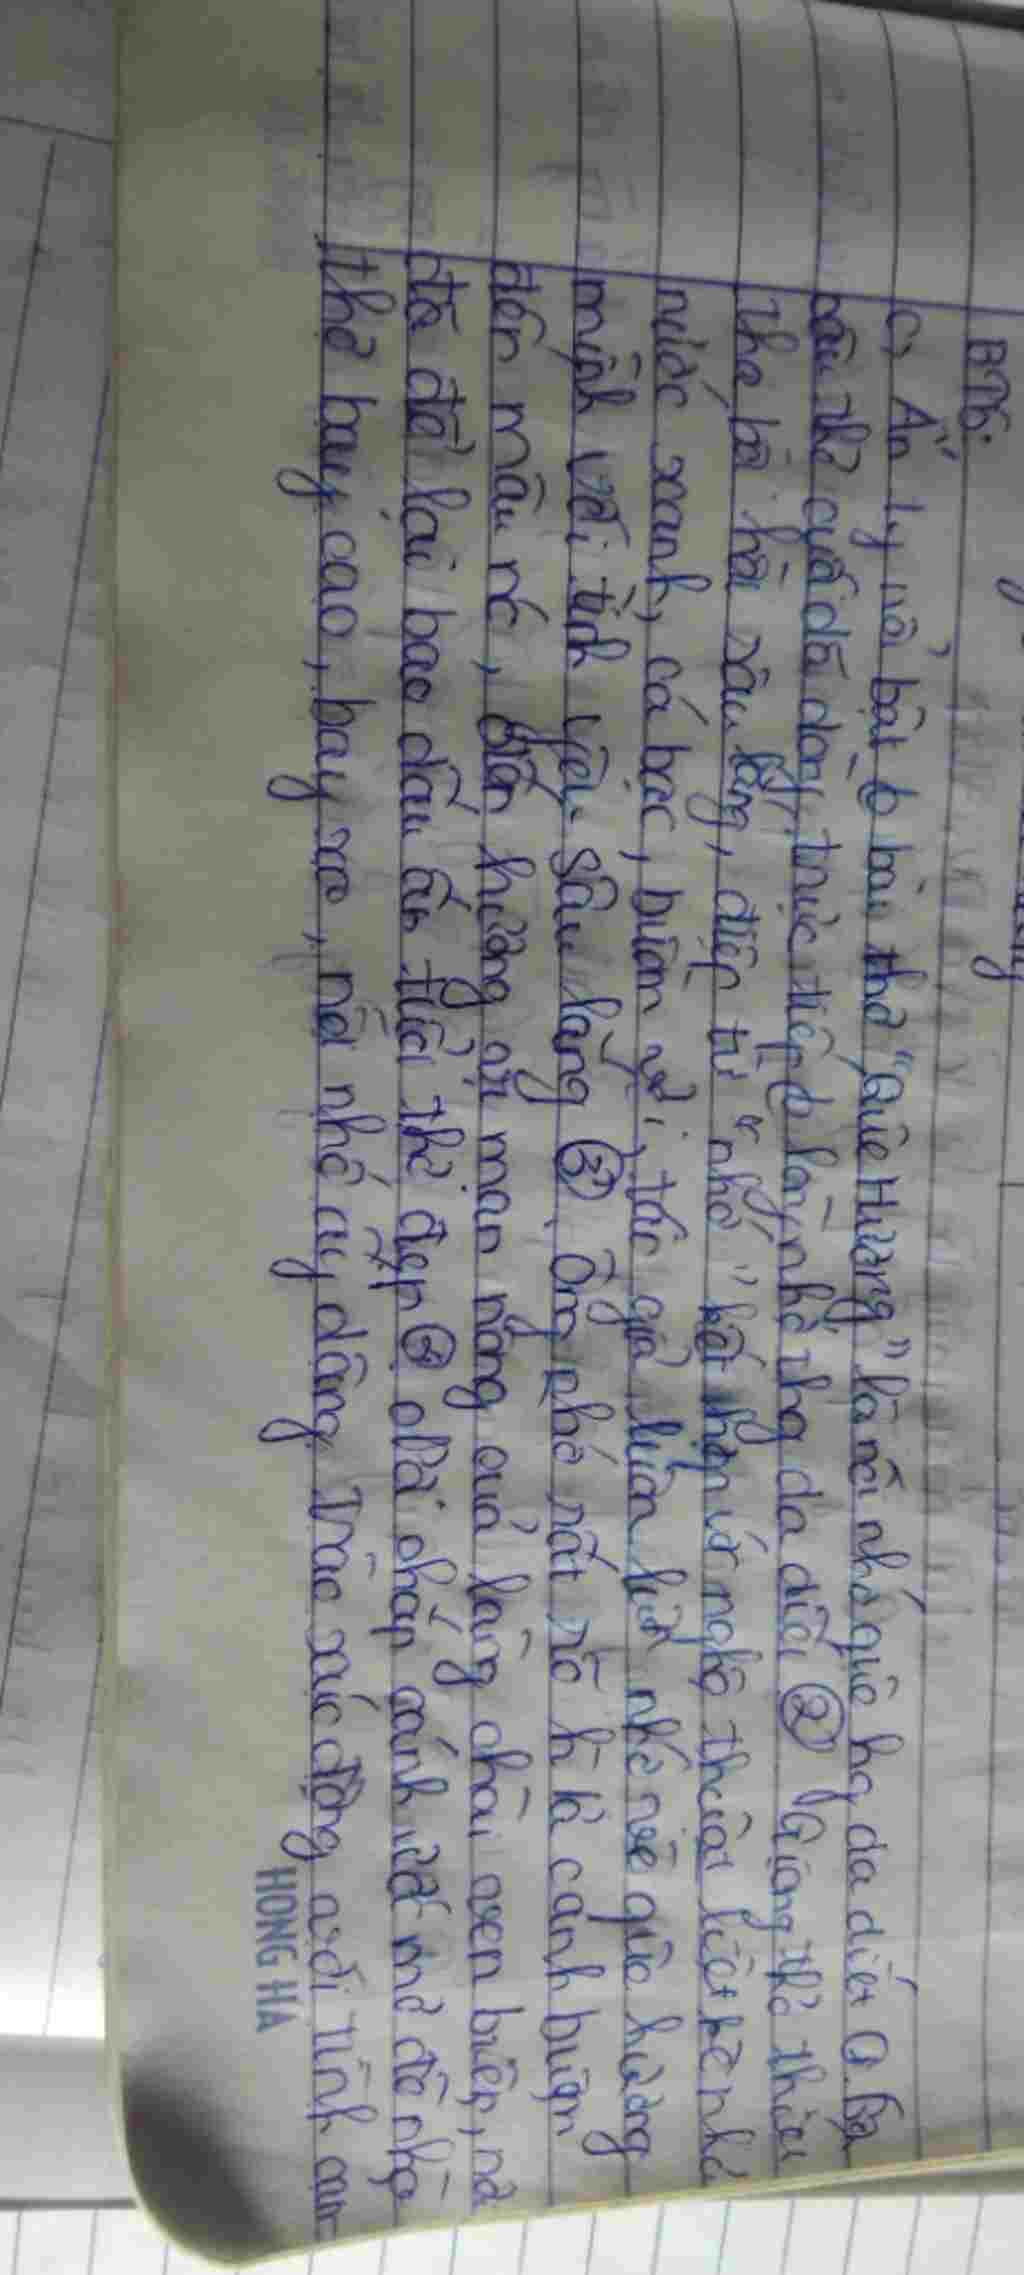 BT6:
c, Ấn tg nổi bật ở bài thơ "Quê Hương" là nỗi nhớ quê hg da diết ①. Ba
câu thơ cuối đã dạy trực tiếp nỗi nhớ da diết ② Giọng thơ thiết
tha bồi hồi sâu lắng, điệp từ "nhớ" kết hợp với nghệ thuật liệt kê nhớ
nước xanh, cá bạc, buồm vôi, tác giả luôn luôn nhớ về quê hương
mình với tình yêu sâu lắng ③. Ông nhớ nhất rõ h là cánh buồm
đến màu nó, hương vị mặn nồng của làng chài ven biển, nó
đã để lại bao dấu ấn tuổi thơ đẹp ④ chắp cánh ước mơ để nhà
thơ bay cao, bay xa, nỗi nhớ ấy dâng trào xúc động với tình cảm
HONG HA